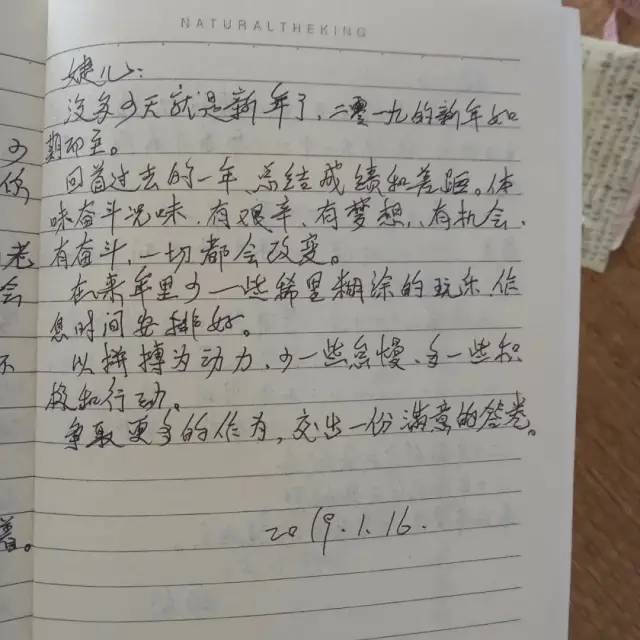 NATURALTHEKING
婕儿:
没多少天就是新年了，二零一九的新年如
期而至。
回首过去的一年，总结成绩和差距。体
味奋斗况味，有艰辛，有梦想，有机会，
有奋斗，一切都会改变。
在来年里少一些稀里糊涂的玩乐，作
息时间安排好。
以拼搏为动力，少一些怠慢，多一些积
极和行动。
争取更多的作为，交出一份满意的答卷。
2019.1.16.
少
你
老
会
不
着。